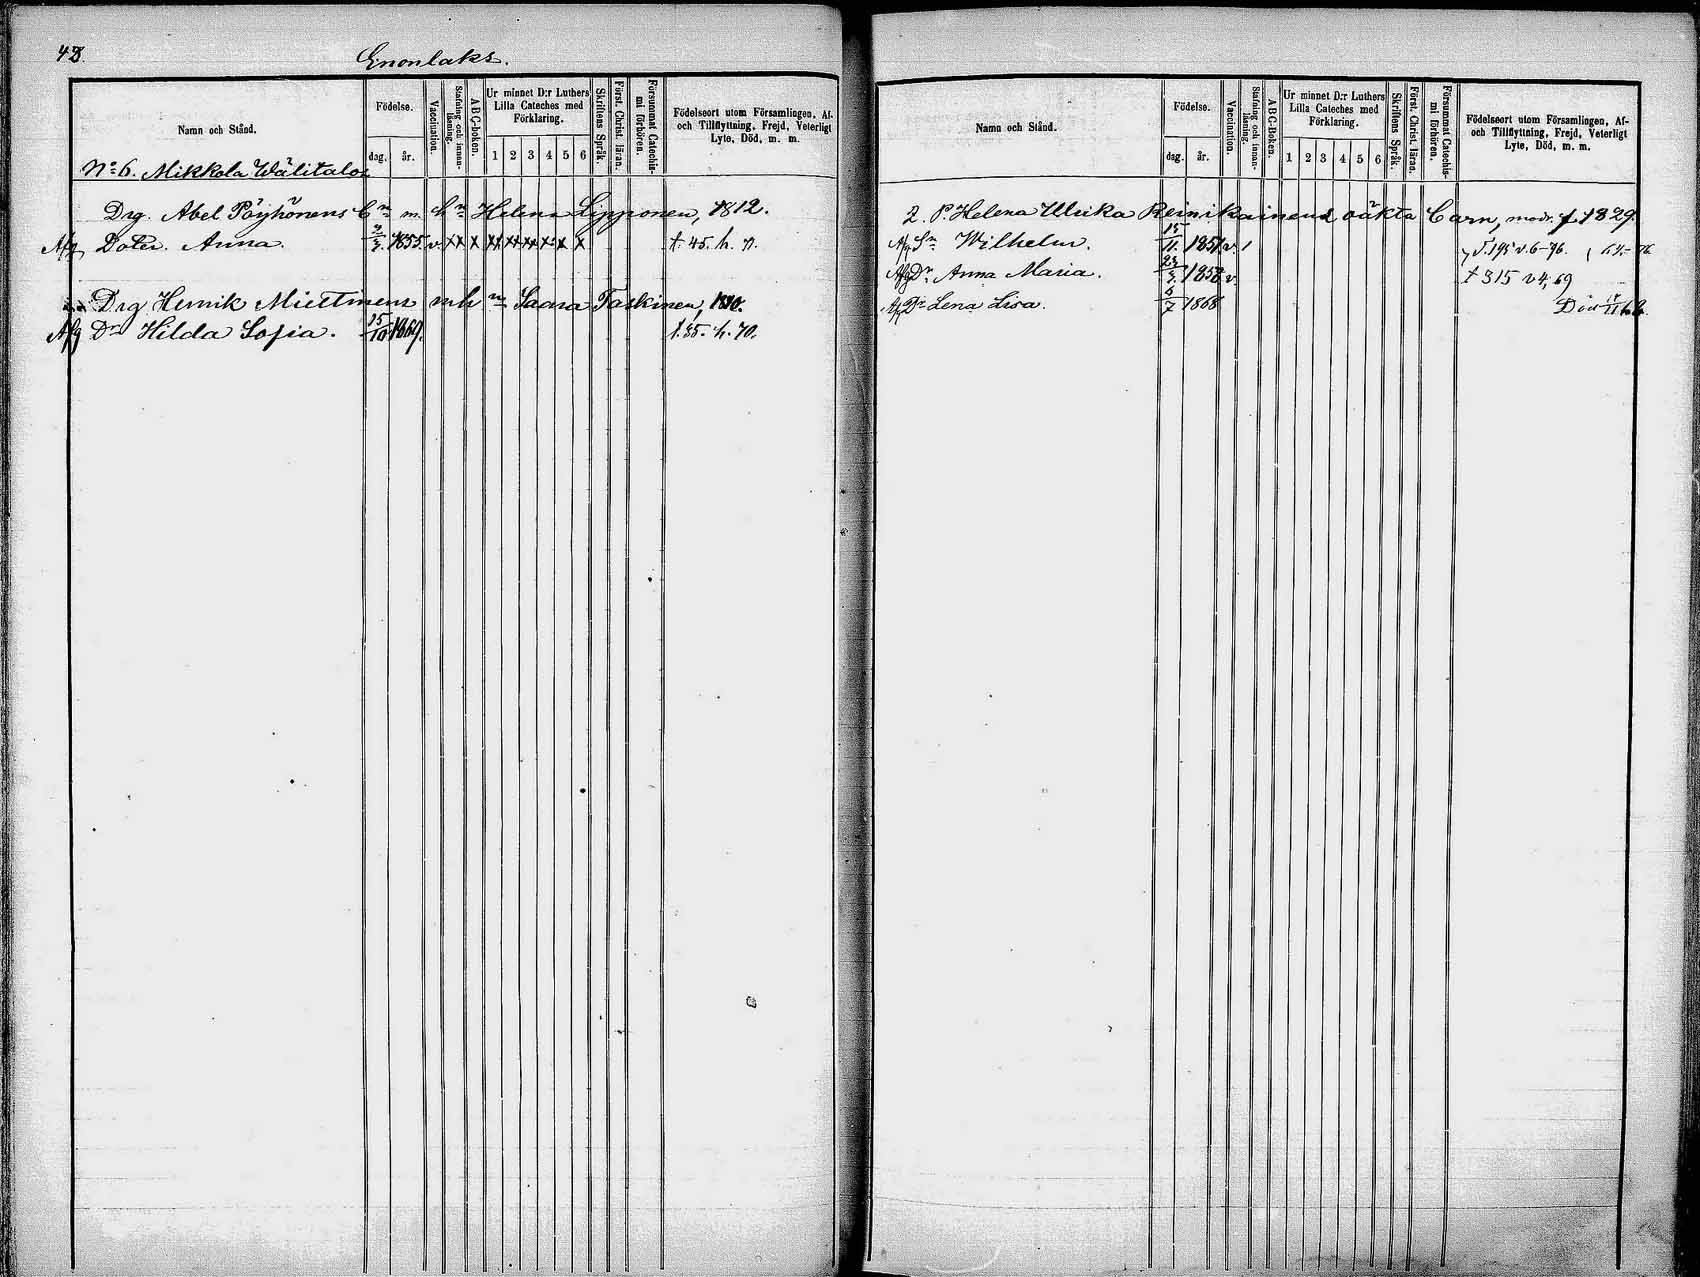 48.
Enonlaks.
Namn och Stånd.
Födelse.
dag.
år.
Vaccination.
Stafning och innan-läsning.
ABC-boken.
Ur minnet D:r Luthers
Lilla Cateches med
Förklaring.
1 2 3 4 5 6
Skriftens Språk.
Först. Christ. läran.
Försummat Catechis-
mi förhören.
Födelseort utom Församlingen, Af-
och Tillflyttning, Frejd, Veterligt
Lyte, Död, m. m.
No 6. Mikkola Wälitalo
Drg. Abel Pöyhönens Cn m. hn Helena Lipponen, 1812.
Afg Doter. Anna. 1855. v. x x x x x x x x †. 45. h.
Drg Henrik Miettinens m h n Saara Taskinen,
Afg Dr Hilda Sofia. 15/10 1869. †. 35. h. 70.
Namn och Stånd.
Födelse.
dag.
år.
Vaccination.
Stafning och innan-läsning.
ABC-Boken.
Ur minnet D:r Luthers
Lilla Cateches med
Förklaring.
1 2 3 4 5 6
Skriftens Språk.
Först. Christ. läran.
Försummat Catechis-
mi förhören.
Födelseort utom Församlingen, Af-
och Tillflyttning, Frejd, Veterligt
Lyte, Död, m. m.
2. P. Helena Ulrika Reinikainens oäkta Barn, modr. f 1829.
Afg Sn Wilhelm. 15/11. v. 1
Afg Dr Anna Maria. 1858 v. † 315 v 4, 69
Afg Dr Lena Lisa. 6/7 1868 Död